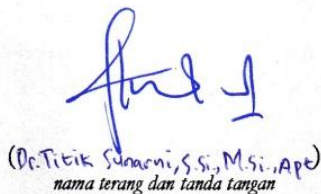 (Dr. Titik Sunarni, S.Si., M.Si., Apt)
nama terang dan tanda tangan